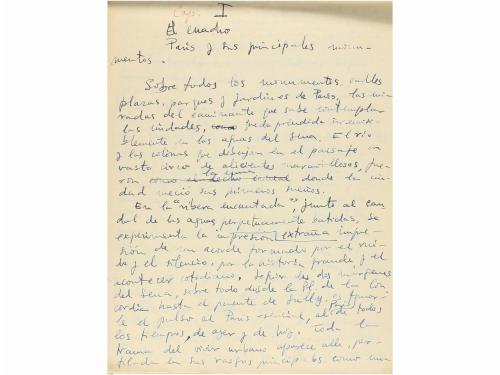 Cap. I
El cuadro
Paris y sus principales monu-
mentos.
Sobre todos los monumentos, calles
plazas, parques y jardines de Paris, las mi-
radas del caminante que sabe contemplar
las ciudades, queda prendida invenci-
blemente en las aguas del Sena. El río
y las colinas que dibujan en el paisaje un
vasto circo de alicientes maravillosos, fue-
ron la cuna donde la ciu-
dad meció sus primeros sueños.
En la "ribera encantada", junto al cau-
dal de las aguas perpetuamente batidas, se
experimenta la impresión extraña impre-
sión de un acorde formado por el rui-
do y el silencio, por la historia grande y el
acontecer cotidiano. Seguir las dos márgenes
del Sena, sobre todo desde la Pl. de la Con-
cordia hasta el puente de Sully, es tomar-
le el pulso al Paris esencial, al de todos
los tiempos, de ayer y de hoy. Toda la
trama del vivir urbano aparece allí per-
filada en sus rasgos principales, como una